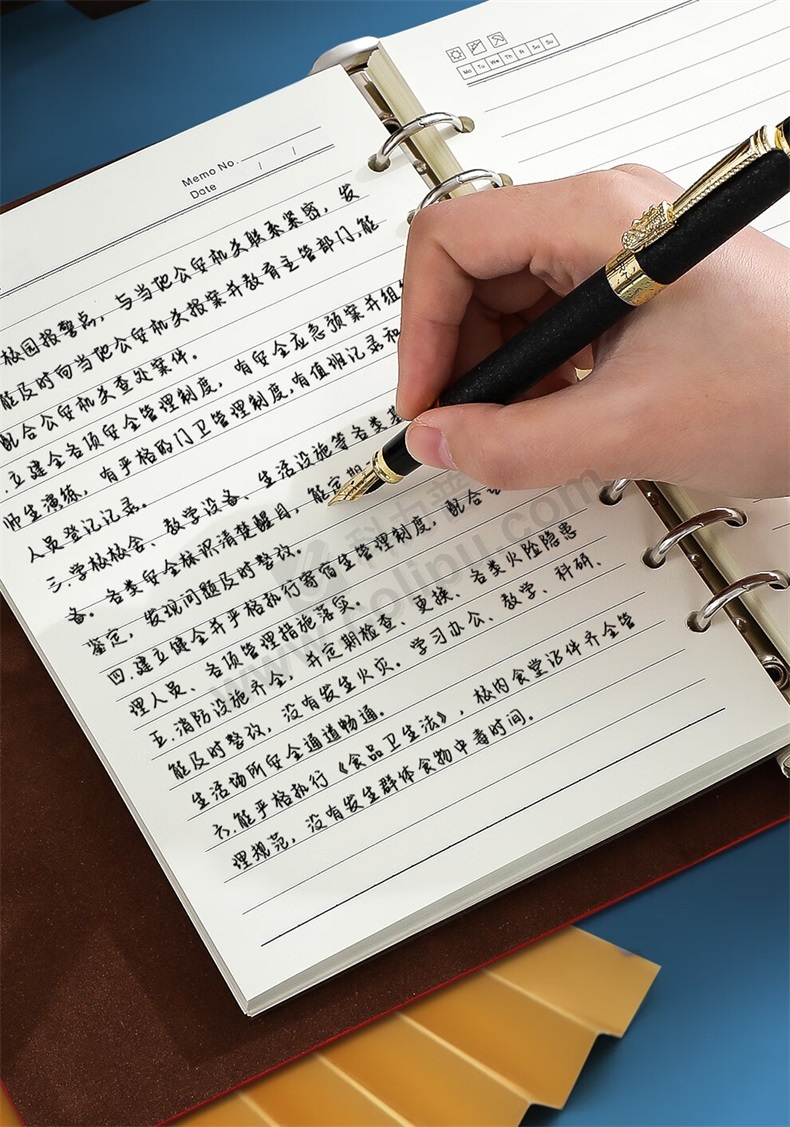 Memo No.
Date / /
Mo Tu We Th Fr Sa Su
校园报警点，与当地公安机关联系紧密，发
能及时向当地公安机关报案并教育主管部门，能
配合公安机关查处案件。
.立健全各项安全管理制度，有安全应急预案并组织
师生演练，有严格的门卫管理制度，有值班记录和
人员登记记录。
三.学校校舍、教学设备、生活设施等各类基
备。各类安全标识清楚醒目，能定期
鉴定，发现问题及时整改。
四.建立健全并严格执行寄宿生管理制度，配合
理人员、各项管理措施落实。
五.消防设施齐全，并定期检查、更换、各类火险隐患
能及时整改，没有发生火灾。学习办公、教学、科研、
生活场所安全通道畅通。
六.能严格执行《食品卫生法》，校内食堂证件齐全管
理规范，没有发生群体食物中毒时间。
www.colipu.com
科力普